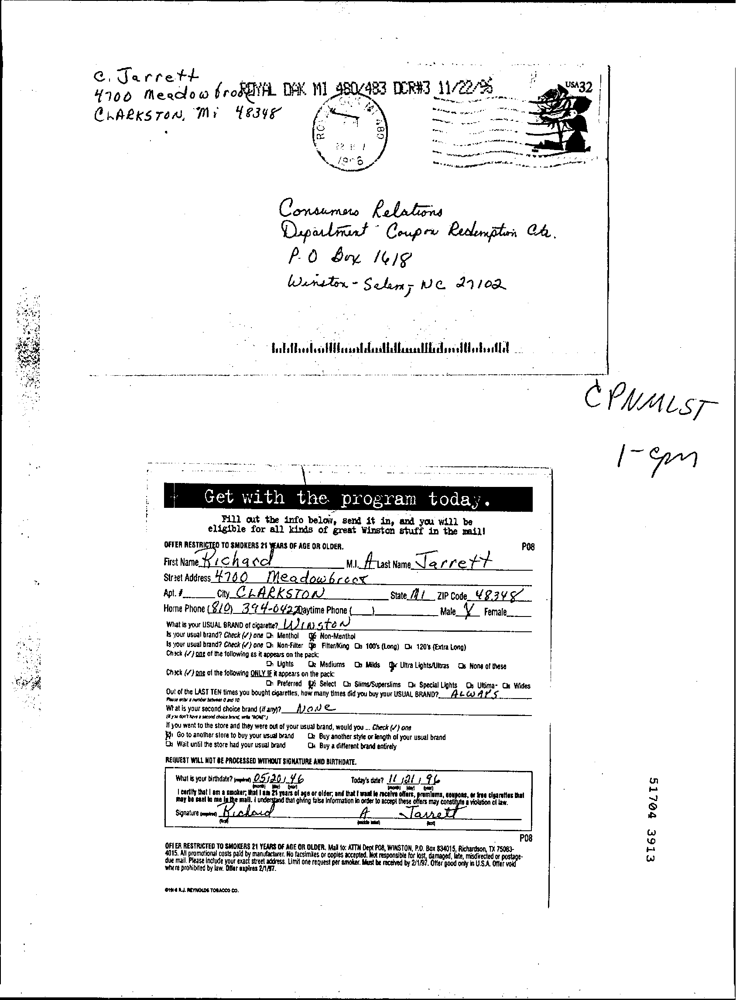 C. Jarrett
4700 Meadowbrook
ROYAL OAK MI 480/483 DCR#3 11/22/96
USA32
CLARKSTON, Mi 48348
1996
Consumers Relations
Department - Coupon Redemption Ctr.
P.O Box 1618
Winston-Salem, NC 27102
CPNMLST
1-cpn
Get with the program today.
Fill out the info below, send it in, and you will be
eligible for all kinds of great Winston stuff in the mail!
OFFER RESTRICTED TO SMOKERS 21 YEARS OF AGE OR OLDER. P08
First Name Richard M.I. A Last Name Jarrett
Street Address 4700 Meadowbrook
Apt. # City CLARKSTON State MI ZIP Code 48348
Home Phone (810) 394-0422 Daytime Phone ( ) Male X Female
What is your USUAL BRAND of cigarette? WINSTON
Is your usual brand? Check (✓) one Menthol Non-Menthol
Is your usual brand? Check (✓) one Non-Filter Filter/King 100's (Long) 120's (Extra Long)
Check (✓) one of the following as it appears on the pack:
Lights Mediums Milds Ultra Lights/Ultras None of these
Check (✓) one of the following ONLY IF it appears on the pack:
Preferred Select Slims/Superslims Special Lights Ultima Wides
Out of the LAST TEN times you bought cigarettes, how many times did you buy your USUAL BRAND? ALWAYS
Please enter a number between 0 and 10
What is your second choice brand (if any)? NONE
(If you don't have a second choice brand, write "NONE")
If you went to the store and they were out of your usual brand, would you ... Check (✓) one
Go to another store to buy your usual brand Buy another style or length of your usual brand
Wait until the store had your usual brand Buy a different brand entirely
REQUEST WILL NOT BE PROCESSED WITHOUT SIGNATURE AND BIRTHDATE.
What is your birthdate? (required) 05/20/46 Today's date? 11/21/96
(month) (day) (year) (month) (day) (year)
I certify that I am a smoker; that I am 21 years of age or older; and that I want to receive offers, premiums, coupons, or free cigarettes that
may be sent to me in the mail. I understand that giving false information in order to accept these offers may constitute a violation of law.
Signature (required) Richard A Jarrett
(first) (middle initial) (last)
P08
OFFER RESTRICTED TO SMOKERS 21 YEARS OF AGE OR OLDER. Mail to: ATTN Dept P08, WINSTON, P.O. Box 834015, Richardson, TX 75083-
4015. All promotional costs paid by manufacturer. No facsimiles or copies accepted. Not responsible for lost, damaged, late, misdirected or postage-
due mail. Please include your exact street address. Limit one request per smoker. Must be received by 2/1/97. Offer good only in U.S.A. Offer void
where prohibited by law. Offer expires 2/1/97.
©1996 R.J. REYNOLDS TOBACCO CO.
51704 3913